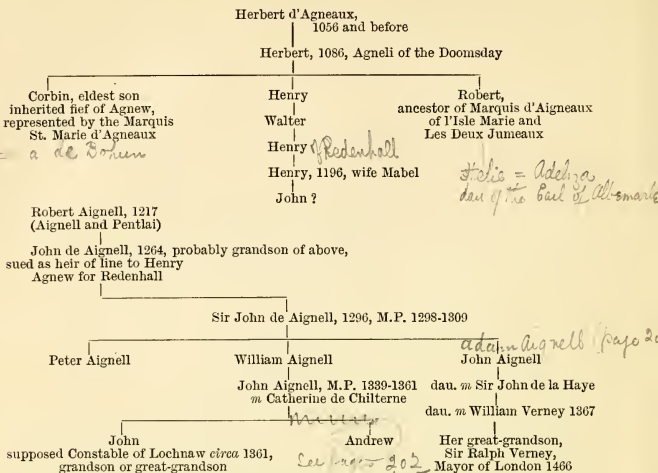 Herbert d'Agneaux,
1056 and before
Herbert, 1086, Agneli of the Doomsday
Corbin, eldest son
inherited fief of Agnew,
represented by the Marquis
St. Marie d'Agneaux
= a de Bohun
Henry
Walter
Henry of Redenhall
Henry, 1196, wife Mabel
John ?
Robert,
ancestor of Marquis d'Aigneaux
of l'Isle Marie and
Les Deux Jumeaux
= Adeliza
dau of the Earl of Albemarle
Robert Aignell, 1217
(Aignell and Pentlai)
John de Aignell, 1264, probably grandson of above,
sued as heir of line to Henry
Agnew for Redenhall
Sir John de Aignell, 1296, M.P. 1298-1309
Adam Aignell page
Peter Aignell
William Aignell
John Aignell
John Aignell, M.P. 1339-1361
m Catherine de Chilterne
dau. m Sir John de la Haye
dau. m William Verney 1367
John
supposed Constable of Lochnaw circa 1361,
grandson or great-grandson
Andrew
See pages 202
Her great-grandson,
Sir Ralph Verney,
Mayor of London 1466